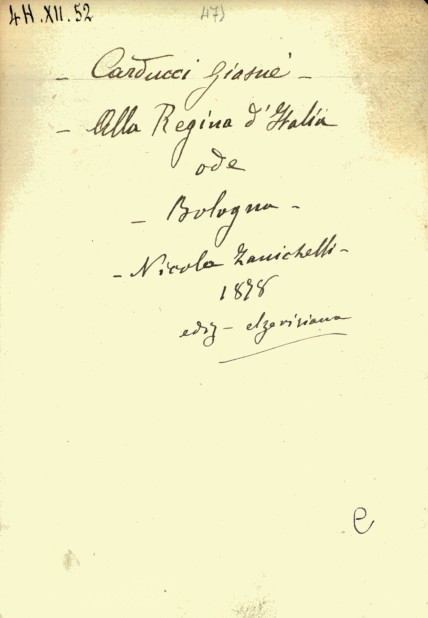 4H.XII.52
47)
- Carducci Giosuè -
- Alla Regina d'Italia
ode
- Bologna -
- Nicola Zanichelli -
1878
ediz - elzeviriana
e